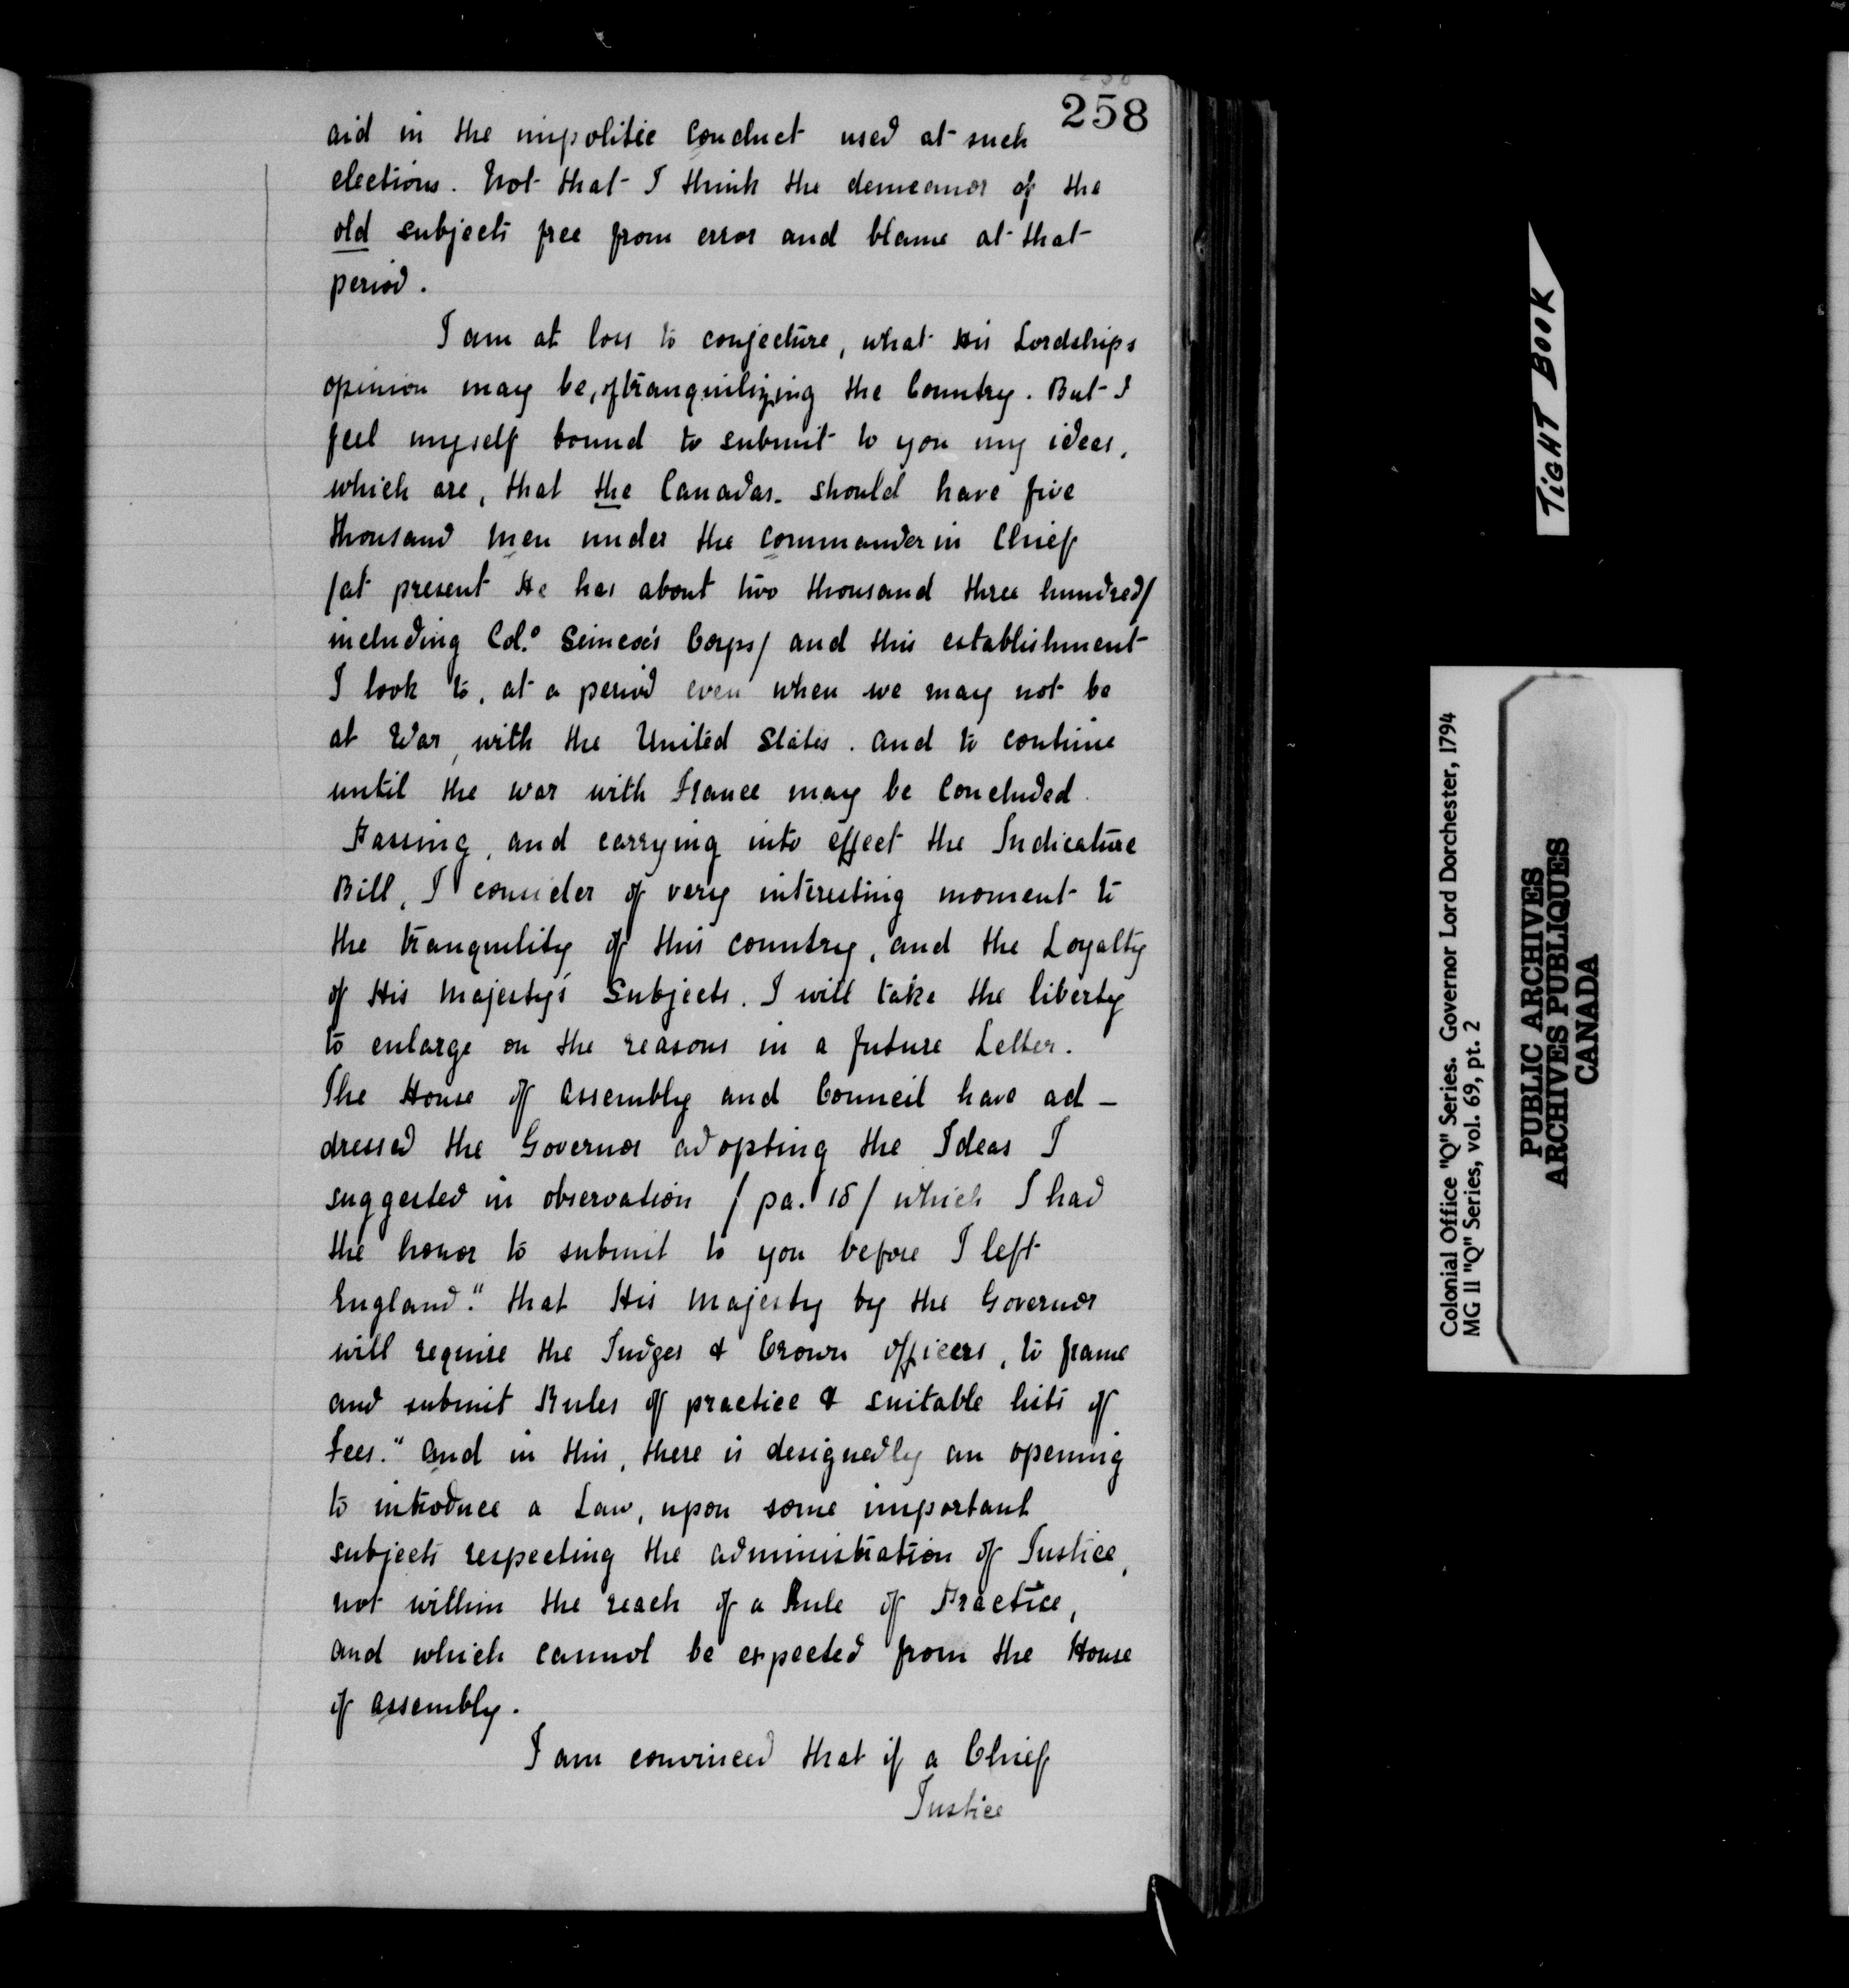 258
aid in the impolitic conduct used at such
elections. Not that I think the demeanor of the
old subjects free from error and blame at that
period.
I am at loss to conjecture, what His Lordships
opinion may be, of tranquilizing the Country. But I
feel myself bound to submit to you my ideas,
which are, that the Canadas. should have five
thousand Men under the Commander in Chief
/at present He has about two thousand three hundred/
including Col.º Simcoe's Corps/ and this establishment
I look to, at a period even when we may not be
at War, with the United States. and to continue
until the war with France may be Concluded.
Passing, and carrying into effect the Judicature
Bill, I consider of very interesting moment to
the tranquility of this country, and the Loyalty
of His Majesty's Subjects. I will take the liberty
to enlarge on the reasons in a future Letter.
The House of Assembly and Council have ad-
dressed the Governor adopting the Ideas I
suggested in observation / pa. 15 / which I had
the honor to submit to you before I left
England." that His Majesty by the Governor
will require the Judges & Crown Officers, to frame
and submit Rules of practice & suitable lists of
Fees." and in this, there is designedly an opening
to introduce a Law, upon some important
subjects respecting the administration of Justice,
not within the reach of a Rule of Practice,
and which cannot be expected from the House
of Assembly.
I am convinced that if a Chief
Justice
TIGHT BOOK
Colonial Office "Q" Series. Governor Lord Dorchester, 1794
MG 11 "Q" Series, vol. 69, pt. 2
PUBLIC ARCHIVES
ARCHIVES PUBLIQUES
CANADA